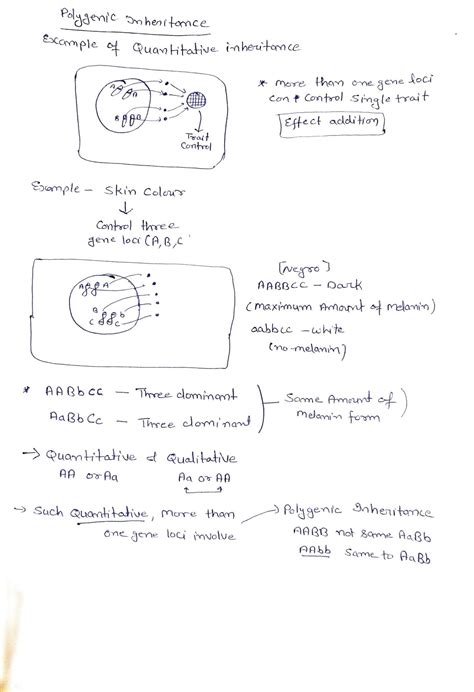 Polygenic Inheritance
Example of Quantitative inheritance
* more than one gene loci
con * Control Single trait
Effect addition
Trait
Control
Example – Skin Colour
Control three
gene loci (A, B, C
[Negro]
AABBCC – Dark
(maximum Amount of melanin)
aabbcc – white
(no-melanin)
* AABbcc — Three dominant
AaBbCc – Three dominant
Same Amount of
melanin form
→ Quantitative & Qualitative
AA or Aa
Aa or AA
→ Such Quantitative, more than
one gene loci involve
→ Polygenic Inheritance
AABB not same AaBb
AAbb same to AaBb